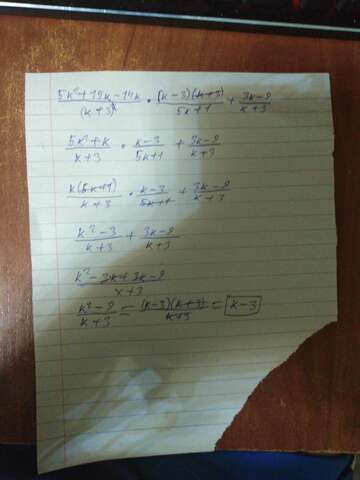 (5k²+19k-14k)/(k+3)² · (k-3)(k+3)/(5k+1) + (3k-9)/(k+3)
(5k²+k)/(k+3) · (k-3)/(5k+1) + (3k-9)/(k+3)
k(5k+1)/(k+3) · (k-3)/(5k+1) + (3k-9)/(k+3)
(k²-3)/(k+3) + (3k-9)/(k+3)
(k²-3k+3k-9)/(x+3)
(k²-9)/(k+3) = (k-3)(k+3)/(k+3) = k-3